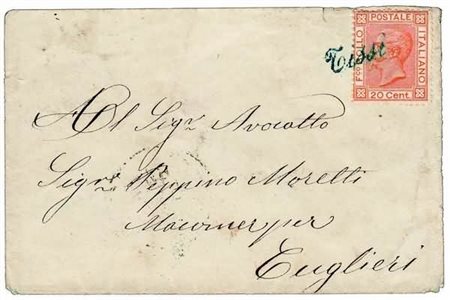 Tissi
Fco BOLLO
POSTALE
ITALIANO
20 Cent
Al Sigr Avocatto
Signr Peppino Moretti
Macomer per
Cuglieri